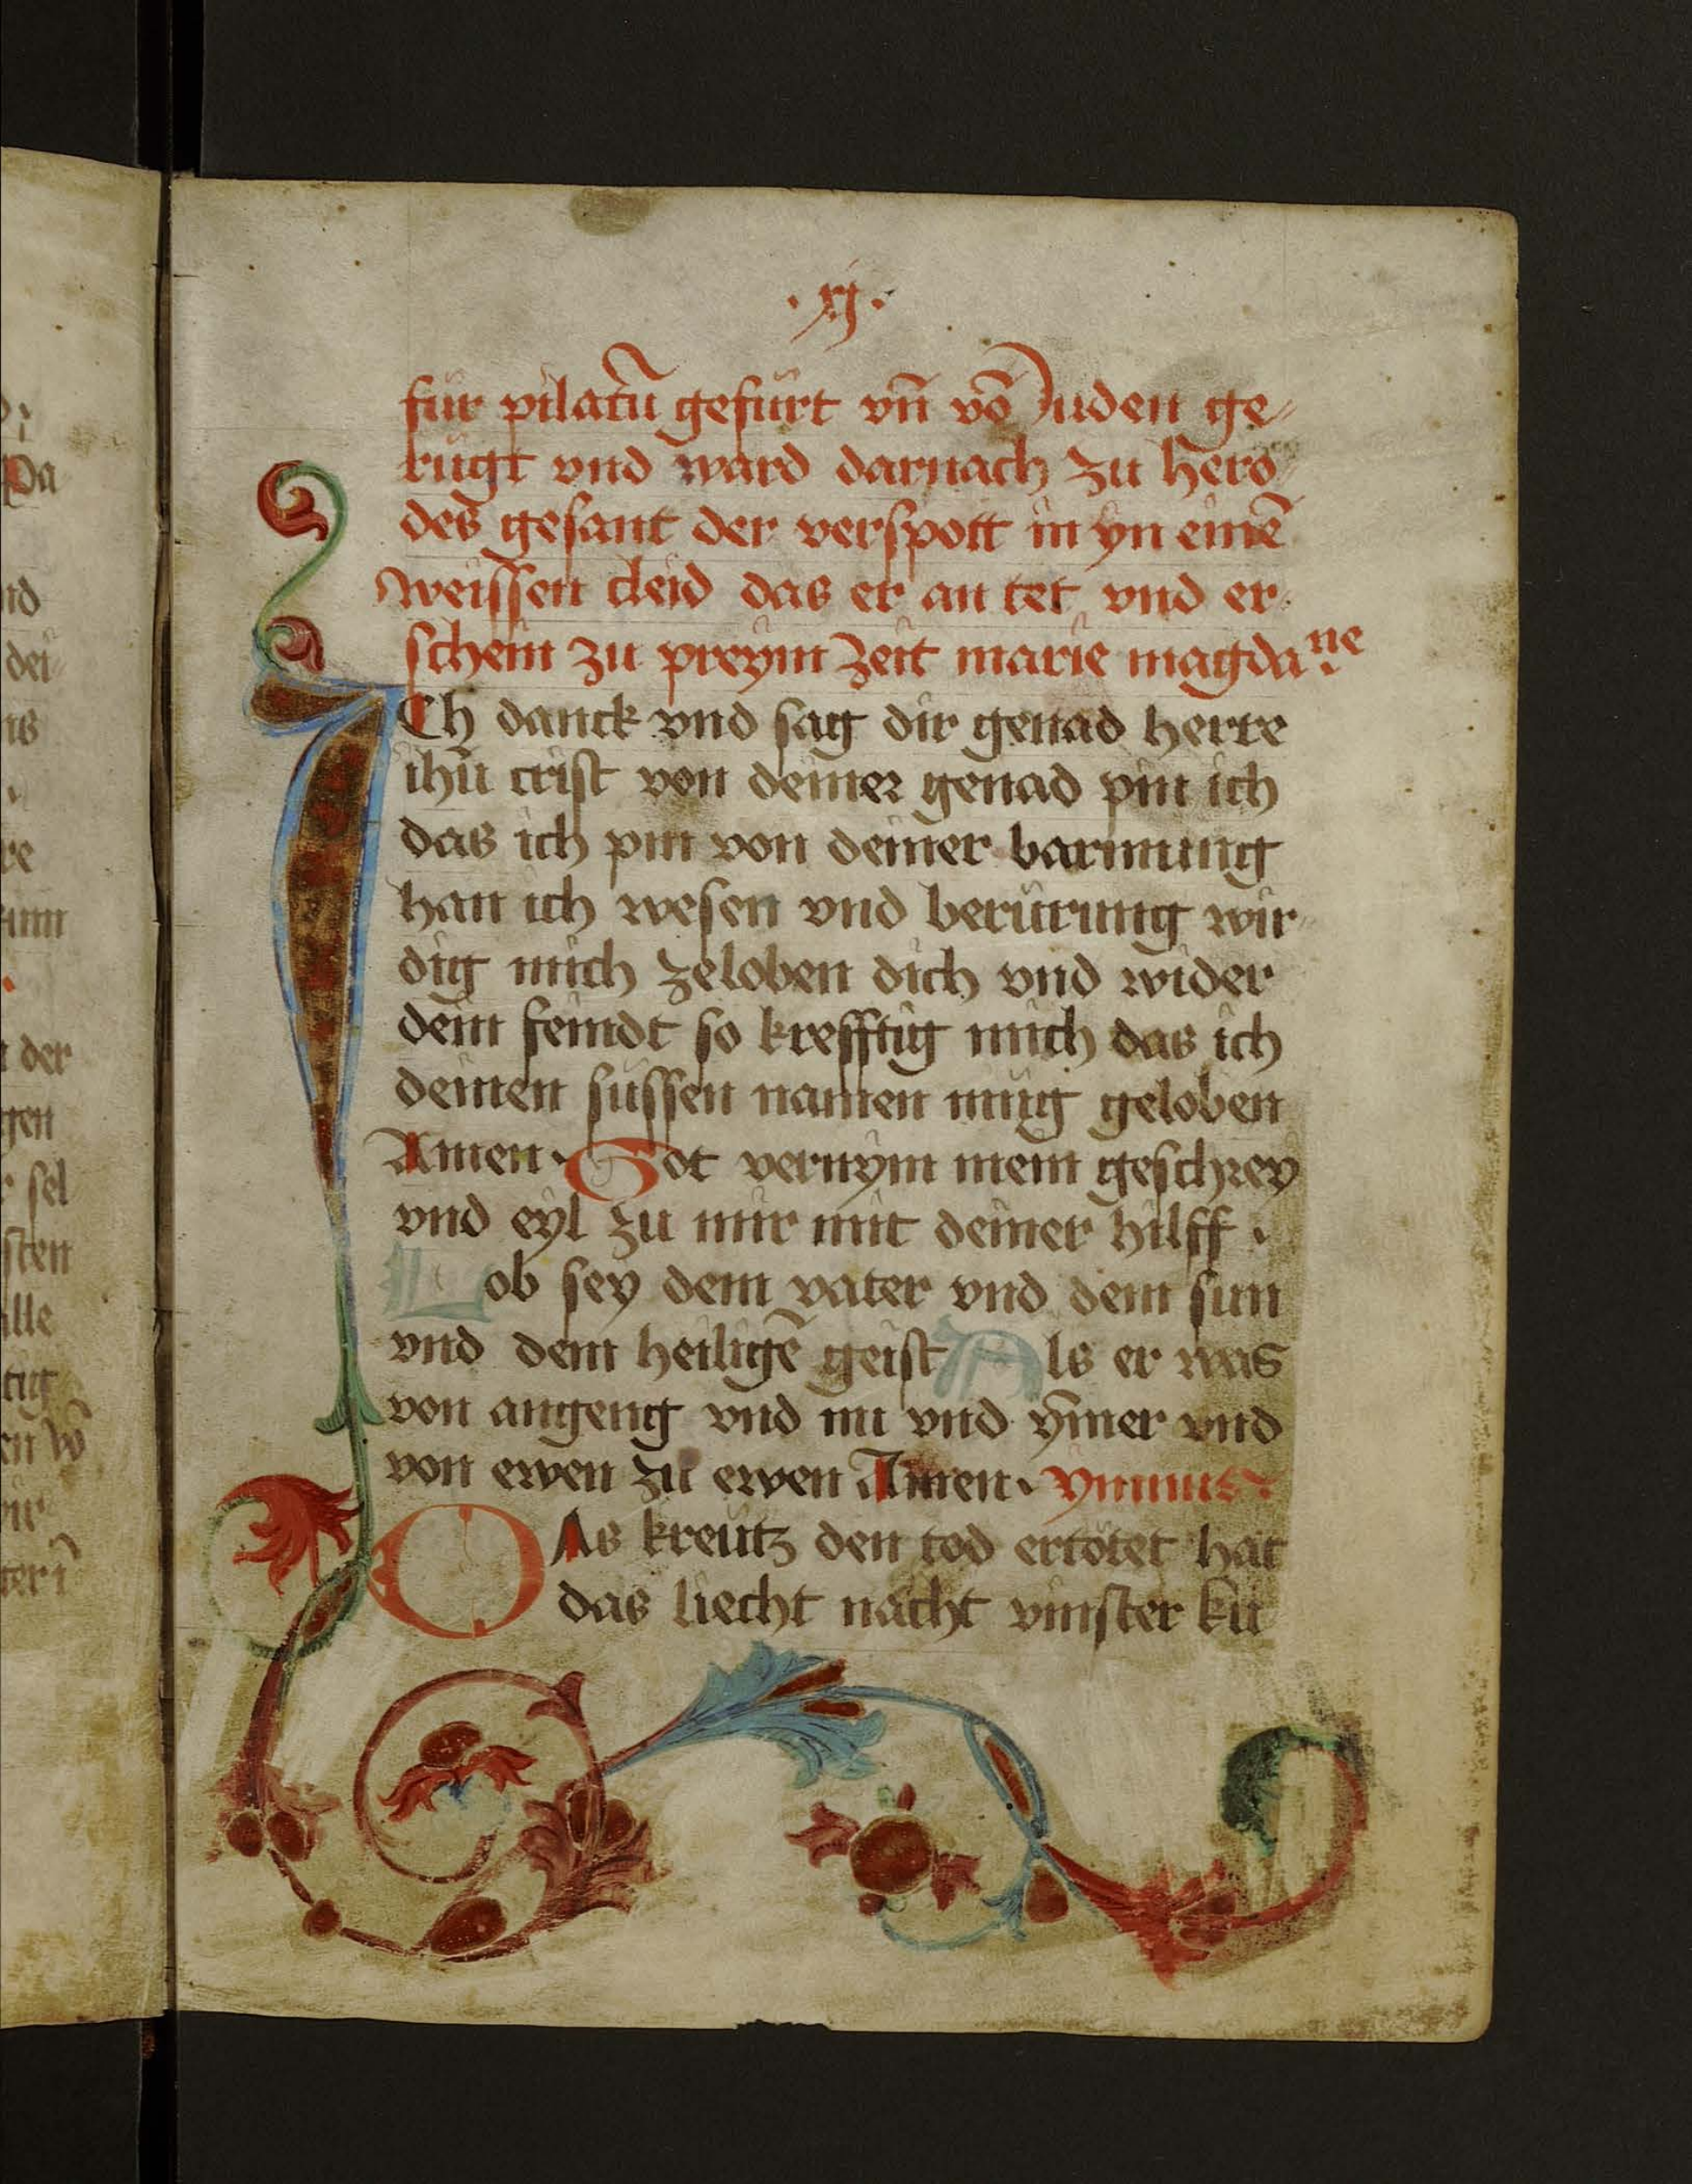 · xj ·
für pilatū gefürt vn̄ vō Juden ge⸗
rügt vnd ward darnach zu hero⸗
des gesant der verspott in yn einē
weissen cleid das er an tet vnd er⸗
schein zu preym zeit marie magdane
ICh danck vnd sag dir genad herre
ihū crist von deiner genad pin ich
das ich pin von deiner barmung
han ich wesen vnd berürung wir⸗
dig mich zeloben dich vnd wider
dein feindt so krefftig mich das ich
deinen süssen namen müg geloben
Amen · Got vernym mein geschrey
vnd eyl zu mir mit deiner hilff ·
Lob sey dem vater vnd dem sun
vnd dem heiligē geist Als er was
von angeng vnd nu vnd ȳmer vnd
von ewen zu ewen Amen · ymnus
DAs kreütz den tod ertötet hat
das liecht nācht vinster ku